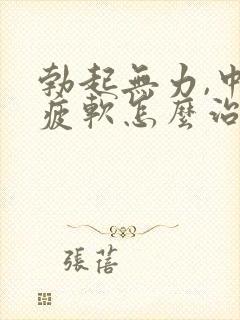 勃起無力,中
疲軟怎麼治
張蓓